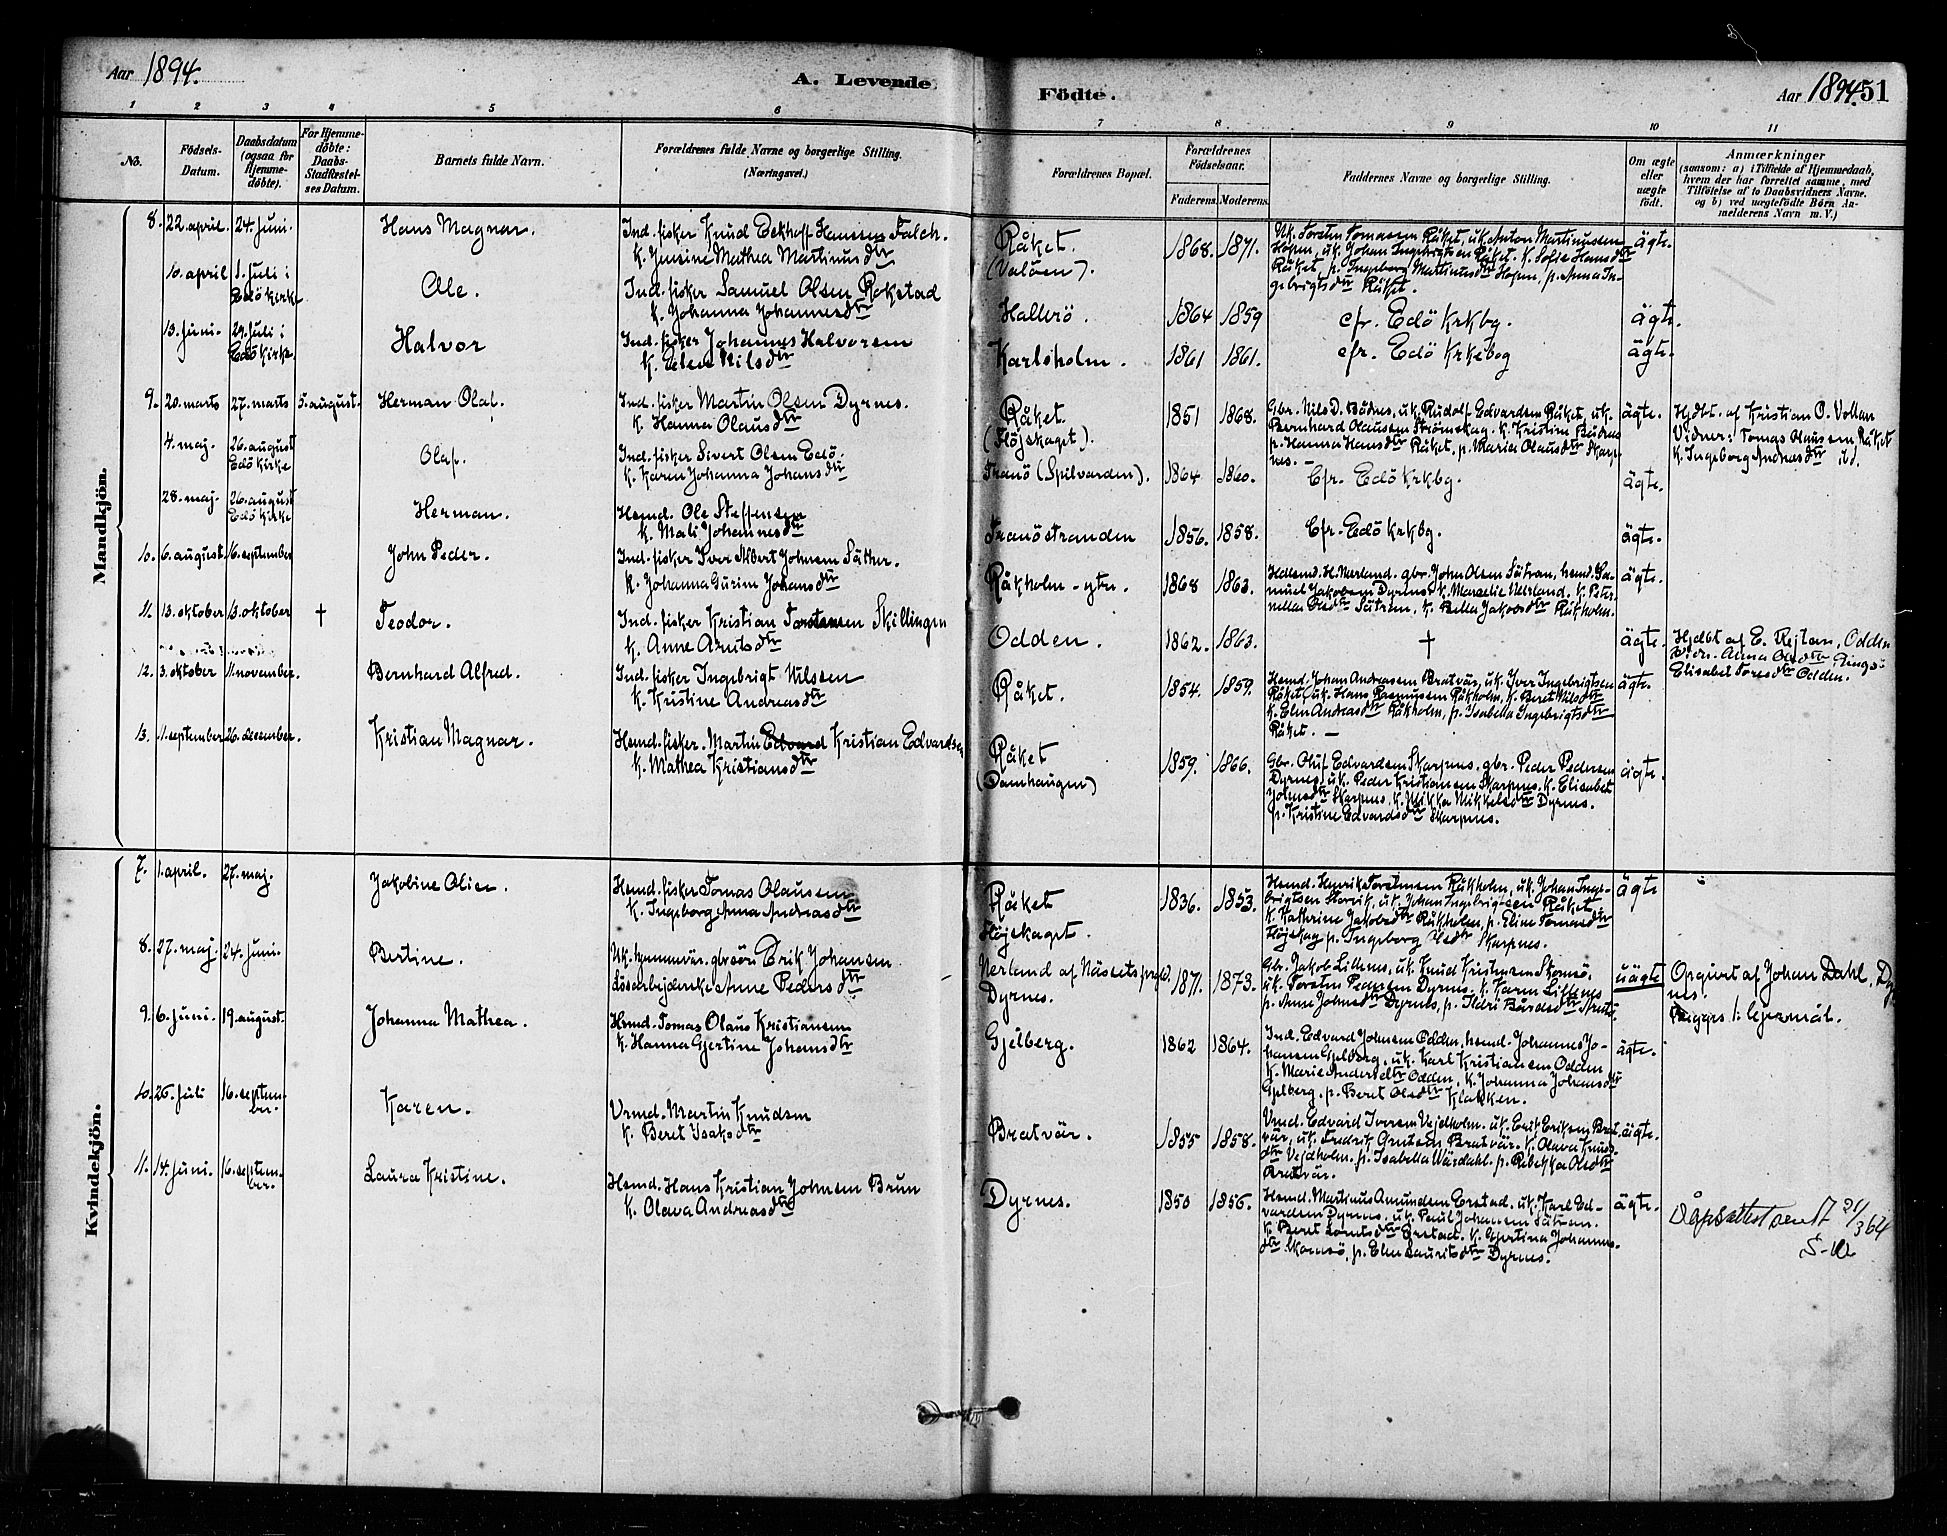 Aar 1894.
A. Levende
Födte.
Aar 1894. 51
1 2 3 4 5 6 7 8 9 10 11
No.
Födsels-
Datum.
Daabsdatum
(ogsaa for
Hjemme-
döbte).
For Hjemme-
döbte:
Daabs-
Stadfæstel-
ses Datum.
Barnets fulde Navn.
Forældrenes fulde Navne og borgerlige Stilling.
(Næringsvei.)
Forældrenes Bopæl.
Forældrenes
Födselsaar.
Faderens. Moderens.
Faddernes Navne og borgerlige Stilling.
Om ægte
eller
uægte
födt.
Anmærkninger
(saasom: a) i Tilfælde af Hjemmedaab,
hvem der har forrettet samme, med
Tilföielse af to Daabsvidners Navne.
og b) ved uægtefödte Börn An-
melderens Navn m. V.)
Mandkjön.
8. 22. april. 24. juni. Hans Magnar.
Ind. fisker Knud Eekhoff Hanssen Falch.
k. Jensine Mathea Martinusdtr
Råket.
(Valöen).
1868. 1871.
Uk. Torsten Tomassen Råket, uk. Anton Martinussen
Hopen, uk. Johan Ingebrigtsen Råket. k. Sofie Hansdtr
Råket, p. Ingeborg Martinusdtr Hopen, p. Anna In-
gebrigtsdtr Råket.
ägte.
10. april 1. juli i
Edö kirke
Ole.
Ind. fisker Samuel Olsen Rokstad
k. Johanna Johannesdtr
Hallerö. 1864 1859 cfr. Edö krkbg. ägte.
13. juni. 29. juli i
Edö kirke.
Halvor
Ind. fisker Johannes Halvorsen
k. Elen Nilsdtr
Karlsholm. 1861 1861. cfr. Edö krkebog ägte.
9. 20. marts 27. marts 5. august. Herman Olaf.
Ind. fisker Martin Olsen Dyrnes.
k. Hanna Olausdtr
Råket.
(Höjskaget).
1851 1868.
Gbr. Nils D. Budnes, uk. Rudolf Edvardsen Råket, uk.
Bernhard Olaussen Strömskag. k. Kristine Budnes
p. Hanna Hansdtr Råket, p. Maria Olausdtr Skarp-
nes.
ägte.
Hjdbt. af Kristian O. Vollan
Vidner: Tomas Olaussen Råket
k. Ingeborg Andreasdtr ibd.
4. maj. 26. august
Edö kirke
Olaf.
Ind. fisker Sivert Olsen Edö.
k. Karen Johanna Johansdtr
Tranö (Spilvarden). 1864 1860. Cfr. Edö krkbg. ägte.
28. maj. 26. august
Edö kirke
Herman.
Hemd. Ole Steffensen
k. Mali Johannesdtr
Tranöstranden 1856. 1858. Cfr. Edö krkbg. ägte.
10. 6. august. 16. september John Peder.
Ind. fisker Iver Albert Johnsen Säther.
k. Johanna Gurine Johansdtr
Råkholm - ytre. 1868 1863.
Hdlsmd. H. Nerland. gbr. John Olsen Sätran, hemd. Sa-
muel Jakobsen Dyrnes. k. Marselie Nerland, k. Peter-
nella Olsdtr Sätran, k. Bella Jakobsdtr Råkholm.
ägte.
11. 13. oktober 13. oktober † Teodor.
Ind. fisker Kristian Torstensen Skillingen
k. Anne Arntsdtr
Odden. 1862. 1863. † ägte.
Hjdbt af E. Rejtan, Odden
Vidn. Anna Olsdtr Ringsö
Elisabet Toresdtr Odden.
12. 3. oktober 11. november. Bernhard Alfred.
Ind. fisker Ingebrigt Nilssen
k. Kristine Andreasdtr
Råket. 1854. 1859.
Hemd. Johan Andreassen Bratvär, uk. Iver Ingebrigtsen
Råket, uk. Hans Rasmussen Råkholm, k. Beret Nilsdtr
k. Elen Andreasdtr Råkholm, p. Isabella Ingebrigtsdtr
Råket.
ägte.
13. 11. september 26. desember. Kristian Magnar.
Hemd. fisker. Martin Edvard Kristian Edvardsen
k. Mathea Kristiansdtr
Råket
(Damhaugen)
1859. 1866.
Gbr. Oluf Edvardsen Skarpnes, gbr. Peder Pedersen
Dyrnes, uk. Peder Kristiansen Skarpnes. k. Elisabet
Johnsdtr Skarpnes, k. Mikka Mikkelsdtr Dyrnes.
p. Kristine Edvardsdtr Skarpnes.
ägte.
Kvindekjön.
7. 1. april. 27. maj. Jakobine Olise.
Hemd. fisker Tomas Olaussen
k. Ingeborg Anna Andreasdtr
Råket
Höjskaget.
1836. 1853.
Hemd. Henrik Torstensen Råkholm, uk. Johan Inge-
brigtsen Storvik, uk. Johan Ingebrigtsen Råket,
k. Kathrine Jakobsdtr Råkholm, p. Eline Tomasdtr
Höjskag p. Ingeborg Olsdtr Skarpnes.
ägte
8. 27. maj. 24. juni. Bertine.
Uk. hjemmevär. gbrsön Erik Johansen
Lösarbejderske Anne Pedersdtr
Nerland af Nässets prgld.
Dyrnes.
1871. 1873.
Gbr. Jakob Lillenes, uk. Knud Kristensen Skomsö.
uk. Torsten Pedersen Dyrnes. k. Karen Lillenes
p. Anne Johnsdtr Dyrnes, p. Ildri Bårdsdtr
uägte
Opgivet af Johan Dahl, Dyr
nes.
Begges 1: lejermål.
9. 6. juni. 19. august. Johanna Mathea.
Hemd. Tomas Olaus Kristiansen
k. Hanna Gjertine Johansdtr
Gjelberg. 1862 1864.
Ind. Edvard Johnsen Odden, hemd. Johannes Jo-
hansen Gjelberg, uk. Karl Kristiansen Odden
k. Marie Andersdtr Odden, k. Johanna Johansdtr
Gjelberg. p. Beret Olsdtr Klakken.
ägte.
10. 26. juli 16. septem-
ber.
Karen.
Vrmd. Martin Knudsen
k. Beret Isaksdtr
Bratvär. 1855 1858.
Vrmd. Edvard Iversen Vejholmen. uk. Erik Eriksen Brat-
vär, uk. Fredrik Arntsen Bratvär. k. Olava Knuds-
dtr Vejholm. p. Isabella Wärdahl. p. Rebekka Olsdtr
Bratvär.
ägte.
11. 14. juni. 16. septem-
ber.
Laura Kristine.
Hemd. Hans Kristian Johnsen Brun
k. Olava Andreasdtr
Dyrnes. 1850 1856.
Hemd. Martinus Amundsen Erstad. uk. Karl Ed-
vardsen Dyrnes. uk. Paul Johansen Sätran.
k. Beret Lorntsdtr Erstad. k. Gjertina Johannes-
dtr Skomsö, p. Elen Lauritsdtr Dyrnes.
ägte.
Dåpsattest sendt 21/3 64